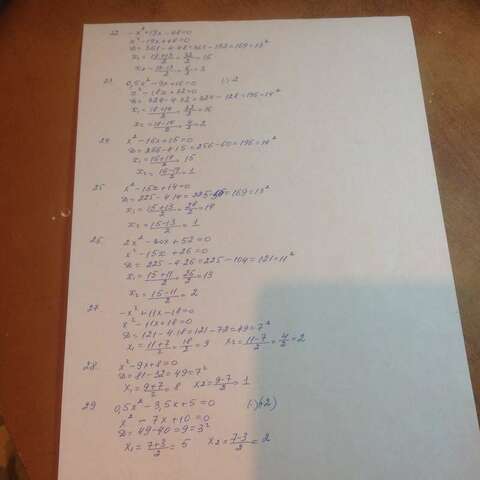 22. -x²+19x-48=0
x²-19x+48=0
D=361-4·48=361-192=169=13²
x₁=(19+13)/2=32/2=16
x₂=(19-13)/2=6/2=3
23 0,5x²-9x+16=0 (:)·2
x²-18x+32=0
D=324-4·32=324-128=196=14²
x₁=(18+14)/2=32/2=16
x₂=(18-14)/2=4/2=2
24 x²-16x+15=0
D=256-4·15=256-60=196=14²
x₁=(16+14)/2=15
x₂=(16-14)/2=1
25 x²-15x+14=0
D=225-4·14=225-56=169=13²
x₁=(15+13)/2=28/2=14
x₂=(15-13)/2=1
26 2x²-30x+52=0
x²-15x+26=0
D=225-4·26=225-104=121=11²
x₁=(15+11)/2=26/2=13
x₂=(15-11)/2=2
27 -x²+11x-18=0
x²-11x+18=0
D=121-4·18=121-72=49=7²
x₁=(11+7)/2=18/2=9 x₂=(11-7)/2=4/2=2
28 x²-9x+8=0
D=81-32=49=7²
x₁=(9+7)/2=8 x2=(9-7)/2=1
29 0,5x²-3,5x+5=0
x²-7x+10=0
D=49-40=9=3²
x₁=(7+3)/2=5 x₂=(7-3)/2=2